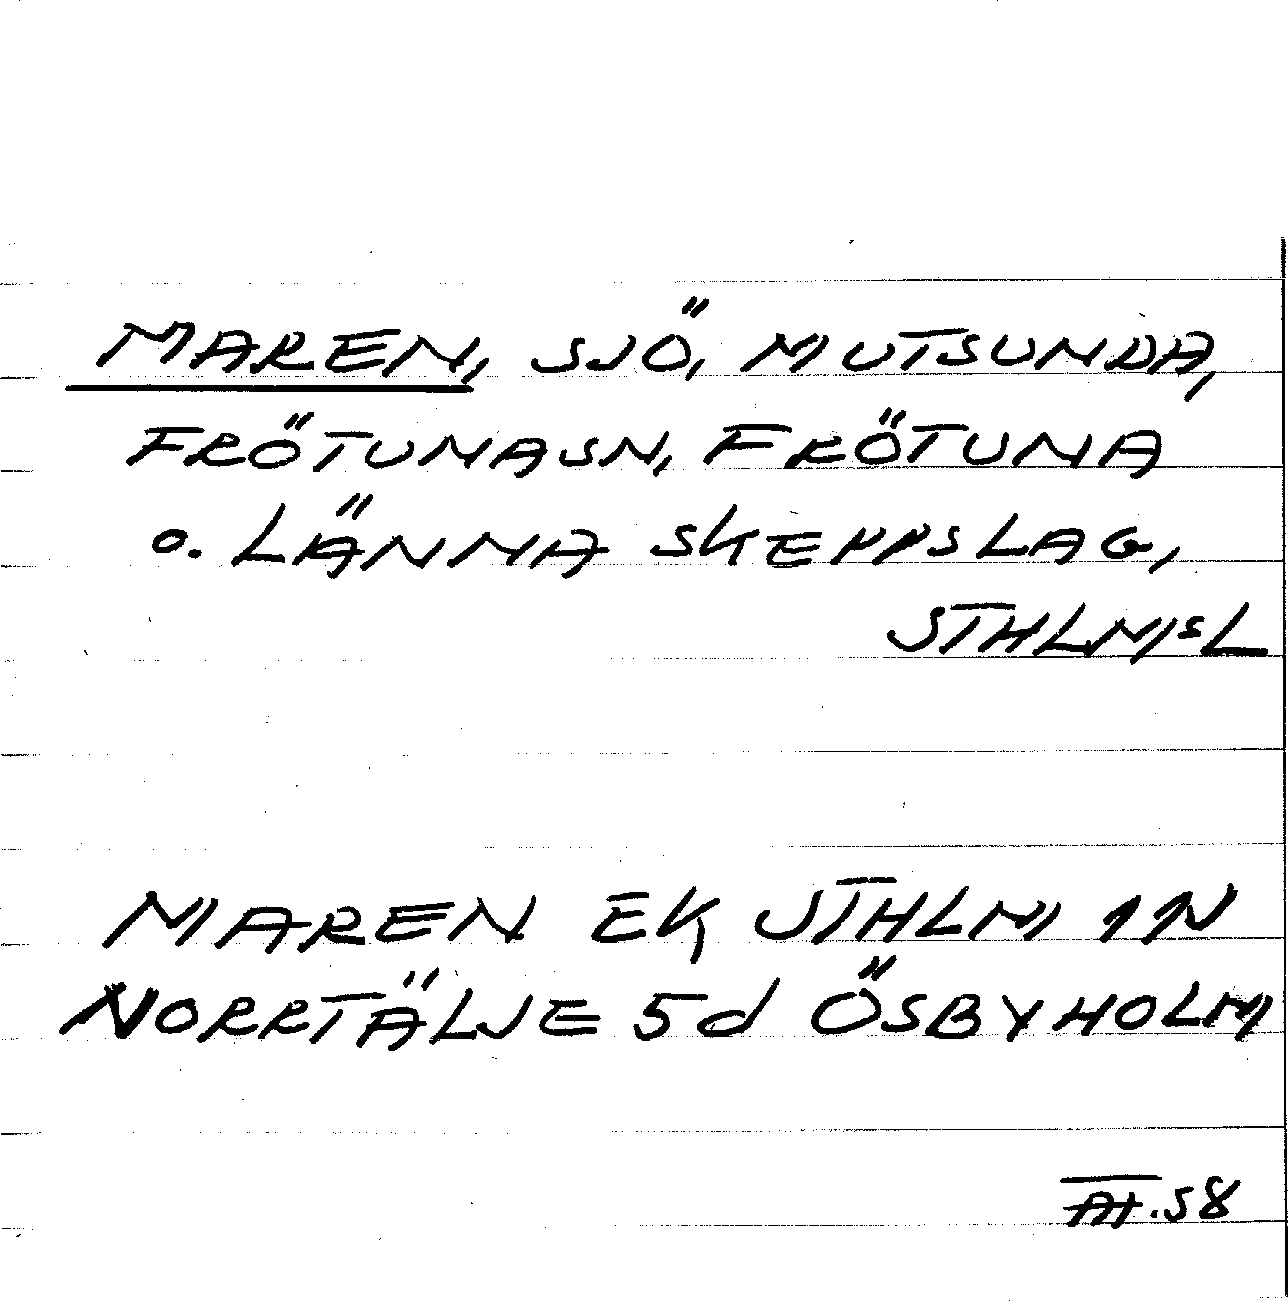 MAREN, SJÖ, MUTSUNDA,
FRÖTUNASN, FRÖTUNA
o. LÄNNA SKEPPSLAG,
STHLMSL
MAREN EK STHLM 11N
NORRTÄLJE 5d ÖSBYHOLM
.58